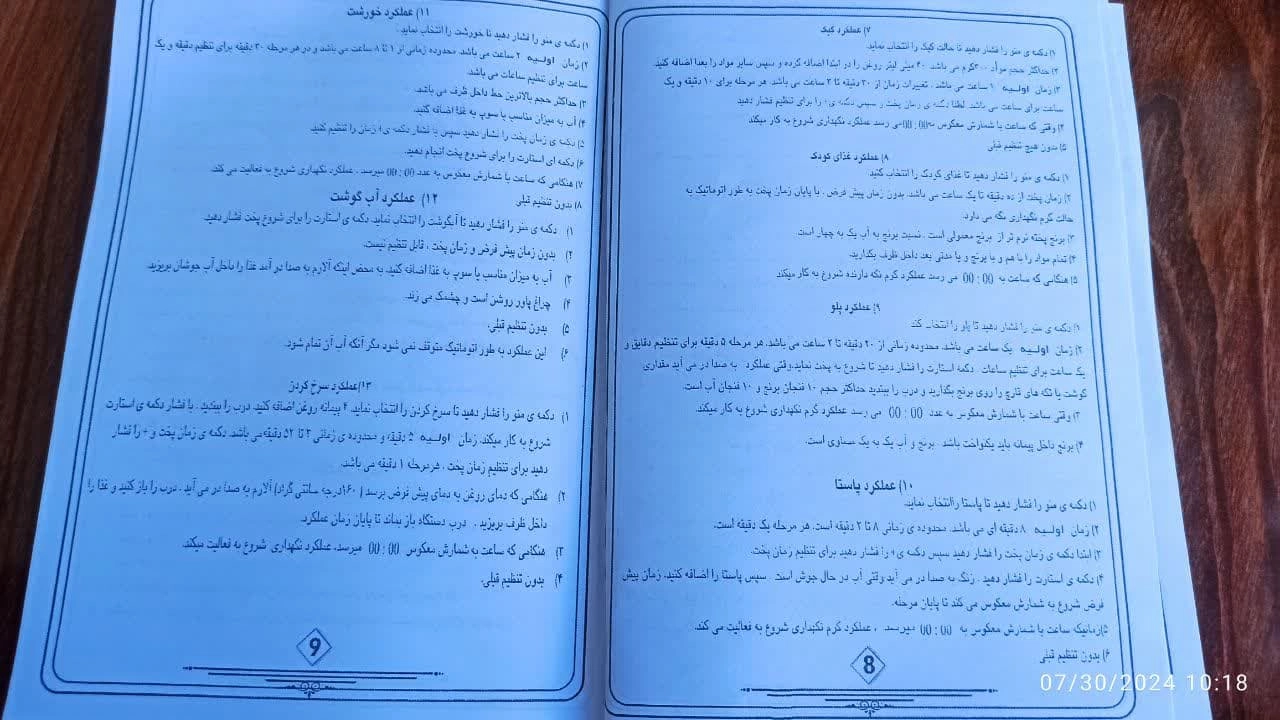 ۷) عملکرد کیک
۱) دکمه ی منو را فشار دهید تا حالت کیک را انتخاب نماید.
۲) حداکثر حجم مواد ۳۰۰گرم می باشد. ۴۰ میلی لیتر روغن را در ابتدا اضافه کرده و سپس سایر مواد را بعدا اضافه کنید.
۳) زمان اولــیه ۱ ساعت می باشد . تغییرات زمان از ۳۰ دقیقه تا ۲ ساعت می باشد. هر مرحله برای ۱۰ دقیقه و یک
ساعت برای ساعت می باشد. لطفا دکمه ی زمان پخت و سپس دکمه ی+ را برای تنظیم فشار دهید
۴) وقتی که ساعت با شمارش معکوس به00:00می رسد عملکرد نگهداری شروع به کار میکند
۵) بدون هیچ تنظیم قبلی
۸) عملکرد غذای کودک
۱) دکمه ی منو را فشار دهید تا غذای کودک را انتخاب کنید
۲) زمان پخت از ده دقیقه تا یک ساعت می باشد. بدون زمان پیش فرض . با پایان زمان پخت به طور اتوماتیک به
حالت گرم نگهداری نگه می دارد.
۳) برنج پخته نرم تر از برنج معمولی است . نسبت برنج به آب یک به چهار است
۴) تمام مواد را با هم و با برنج و یا مدتی بعد داخل ظرف بگذارید.
۵) هنگامی که ساعت به 00 : 00 می رسد عملکرد گرم نگه دارنده شروع به کار میکند
۹) عملکرد پلو
۱) دکمه ی منو را فشار دهید تا پلو را انتخاب کند
۲) زمان اولــیه یک ساعت می باشد. محدوده زمانی از ۲۰ دقیقه تا ۲ ساعت می باشد. هر مرحله ۵ دقیقه برای تنظیم دقایق و
یک ساعت برای تنظیم ساعات . دکمه استارت را فشار دهید تا شروع به پخت نماید.وقتی عملکرد به صدا در می آید مقداری
گوشت یا تکه های قارچ را روی برنج بگذارید و درب را ببندید حداکثر حجم ۱۰ فنجان برنج و ۱۰ فنجان آب است.
۳) وقتی ساعت با شمارش معکوس به عدد 00 : 00 می رسد عملکرد گرم نگهداری شروع به کار میکند.
۴) برنج داخل پیمانه باید یکنواخت باشد . برنج و آب یک به یک مساوی است.
۱۰) عملکرد پاستا
۱) دکمه ی منو را فشار دهید تا پاستا راانتخاب نماید.
۲) زمان اولــیه ۸ دقیقه ای می باشد. محدوده ی زمانی ۸ تا ۲ دقیقه است. هر مرحله یک دقیقه است.
۳) ابتدا دکمه ی زمان پخت را فشار دهید سپس دکمه ی+ را فشار دهید برای تنظیم زمان پخت.
۴) دکمه ی استارت را فشار دهید . زنگ به صدا در می آید وقتی آب در حال جوش است . سپس پاستا را اضافه کنید. زمان پیش
فرض شروع به شمارش معکوس می کند تا پایان مرحله.
۵)زمانیکه ساعت با شمارش معکوس به 00 : 00 میرسد . عملکرد گرم نگهداری شروع به فعالیت می کند.
۶) بدون تنظیم قبلی
8
۱۱) عملکرد خورشت
۱) دکمه ی منو را فشار دهید تا خورشت را انتخاب نماید.
۲) زمان اولــیه ۲ ساعت می باشد. محدوده زمانی از ۱ تا ۸ ساعت می باشد و در هر مرحله ۳۰ دقیقه برای تنظیم دقیقه و یک
ساعت برای تنظیم ساعات می باشد.
۳) حداکثر حجم بالاترین خط داخل ظرف می باشد.
۴) آب به میزان مناسب یا سوپ به غذا اضافه کنید.
۵) دکمه ی زمان پخت را فشار دهید سپس با فشار دکمه ی+ زمان را تنظیم کنید
۶) دکمه ای استارت را برای شروع پخت انجام دهید.
۷) هنگامی که ساعت با شمارش معکوس به عدد 00 : 00 میرسد . عملکرد نگهداری شروع به فعالیت می کند.
۸) بدون تنظیم قبلی
۱۲) عملکرد آب گوشت
۱) دکمه ی منو را فشار دهید تا آبگوشت را انتخاب نماید. دکمه ی استارت را برای شروع پخت فشار دهید
۲) بدون زمان پیش فرض و زمان پخت ، قابل تنظیم نیست.
۳) آب به میزان مناسب یا سوپ به غذا اضافه کنید. به محض اینکه آلارم به صدا در آمد غذا را داخل آب جوشان بریزید.
۴) چراغ پاور روشن است و چشمک می زند.
۵) بدون تنظیم قبلی.
۶) این عملکرد به طور اتوماتیک متوقف نمی شود مگر آنکه آب آن تمام شود.
۱۳)عملکرد سرخ کردن
۱) دکمه ی منو را فشار دهید تا سرخ کردن را انتخاب نماید. ۴ پیمانه روغن اضافه کنید. درب را ببندید . با فشار دکمه ی استارت
شروع به کار میکند. زمان اولــیه ۵ دقیقه و محدوده ی زمانی ۳ تا ۵۲ دقیقه می باشد. دکمه ی زمان پخت و + را فشار
دهید برای تنظیم زمان پخت . هرمرحله ۱ دقیقه می باشد.
۲) هنگامی که دمای روغن به دمای پیش فرض برسد ( ۱۶۰درجه سانتی گراد) آلارم به صدا در می آید . درب را باز کنید و غذا را
داخل ظرف بریزید . درب دستگاه باز بماند تا پایان زمان عملکرد.
۳) هنگامی که ساعت به شمارش معکوس 00 : 00 میرسد. عملکرد نگهداری شروع به فعالیت میکند.
۴) بدون تنظیم قبلی.
9
07/30/2024 10:18